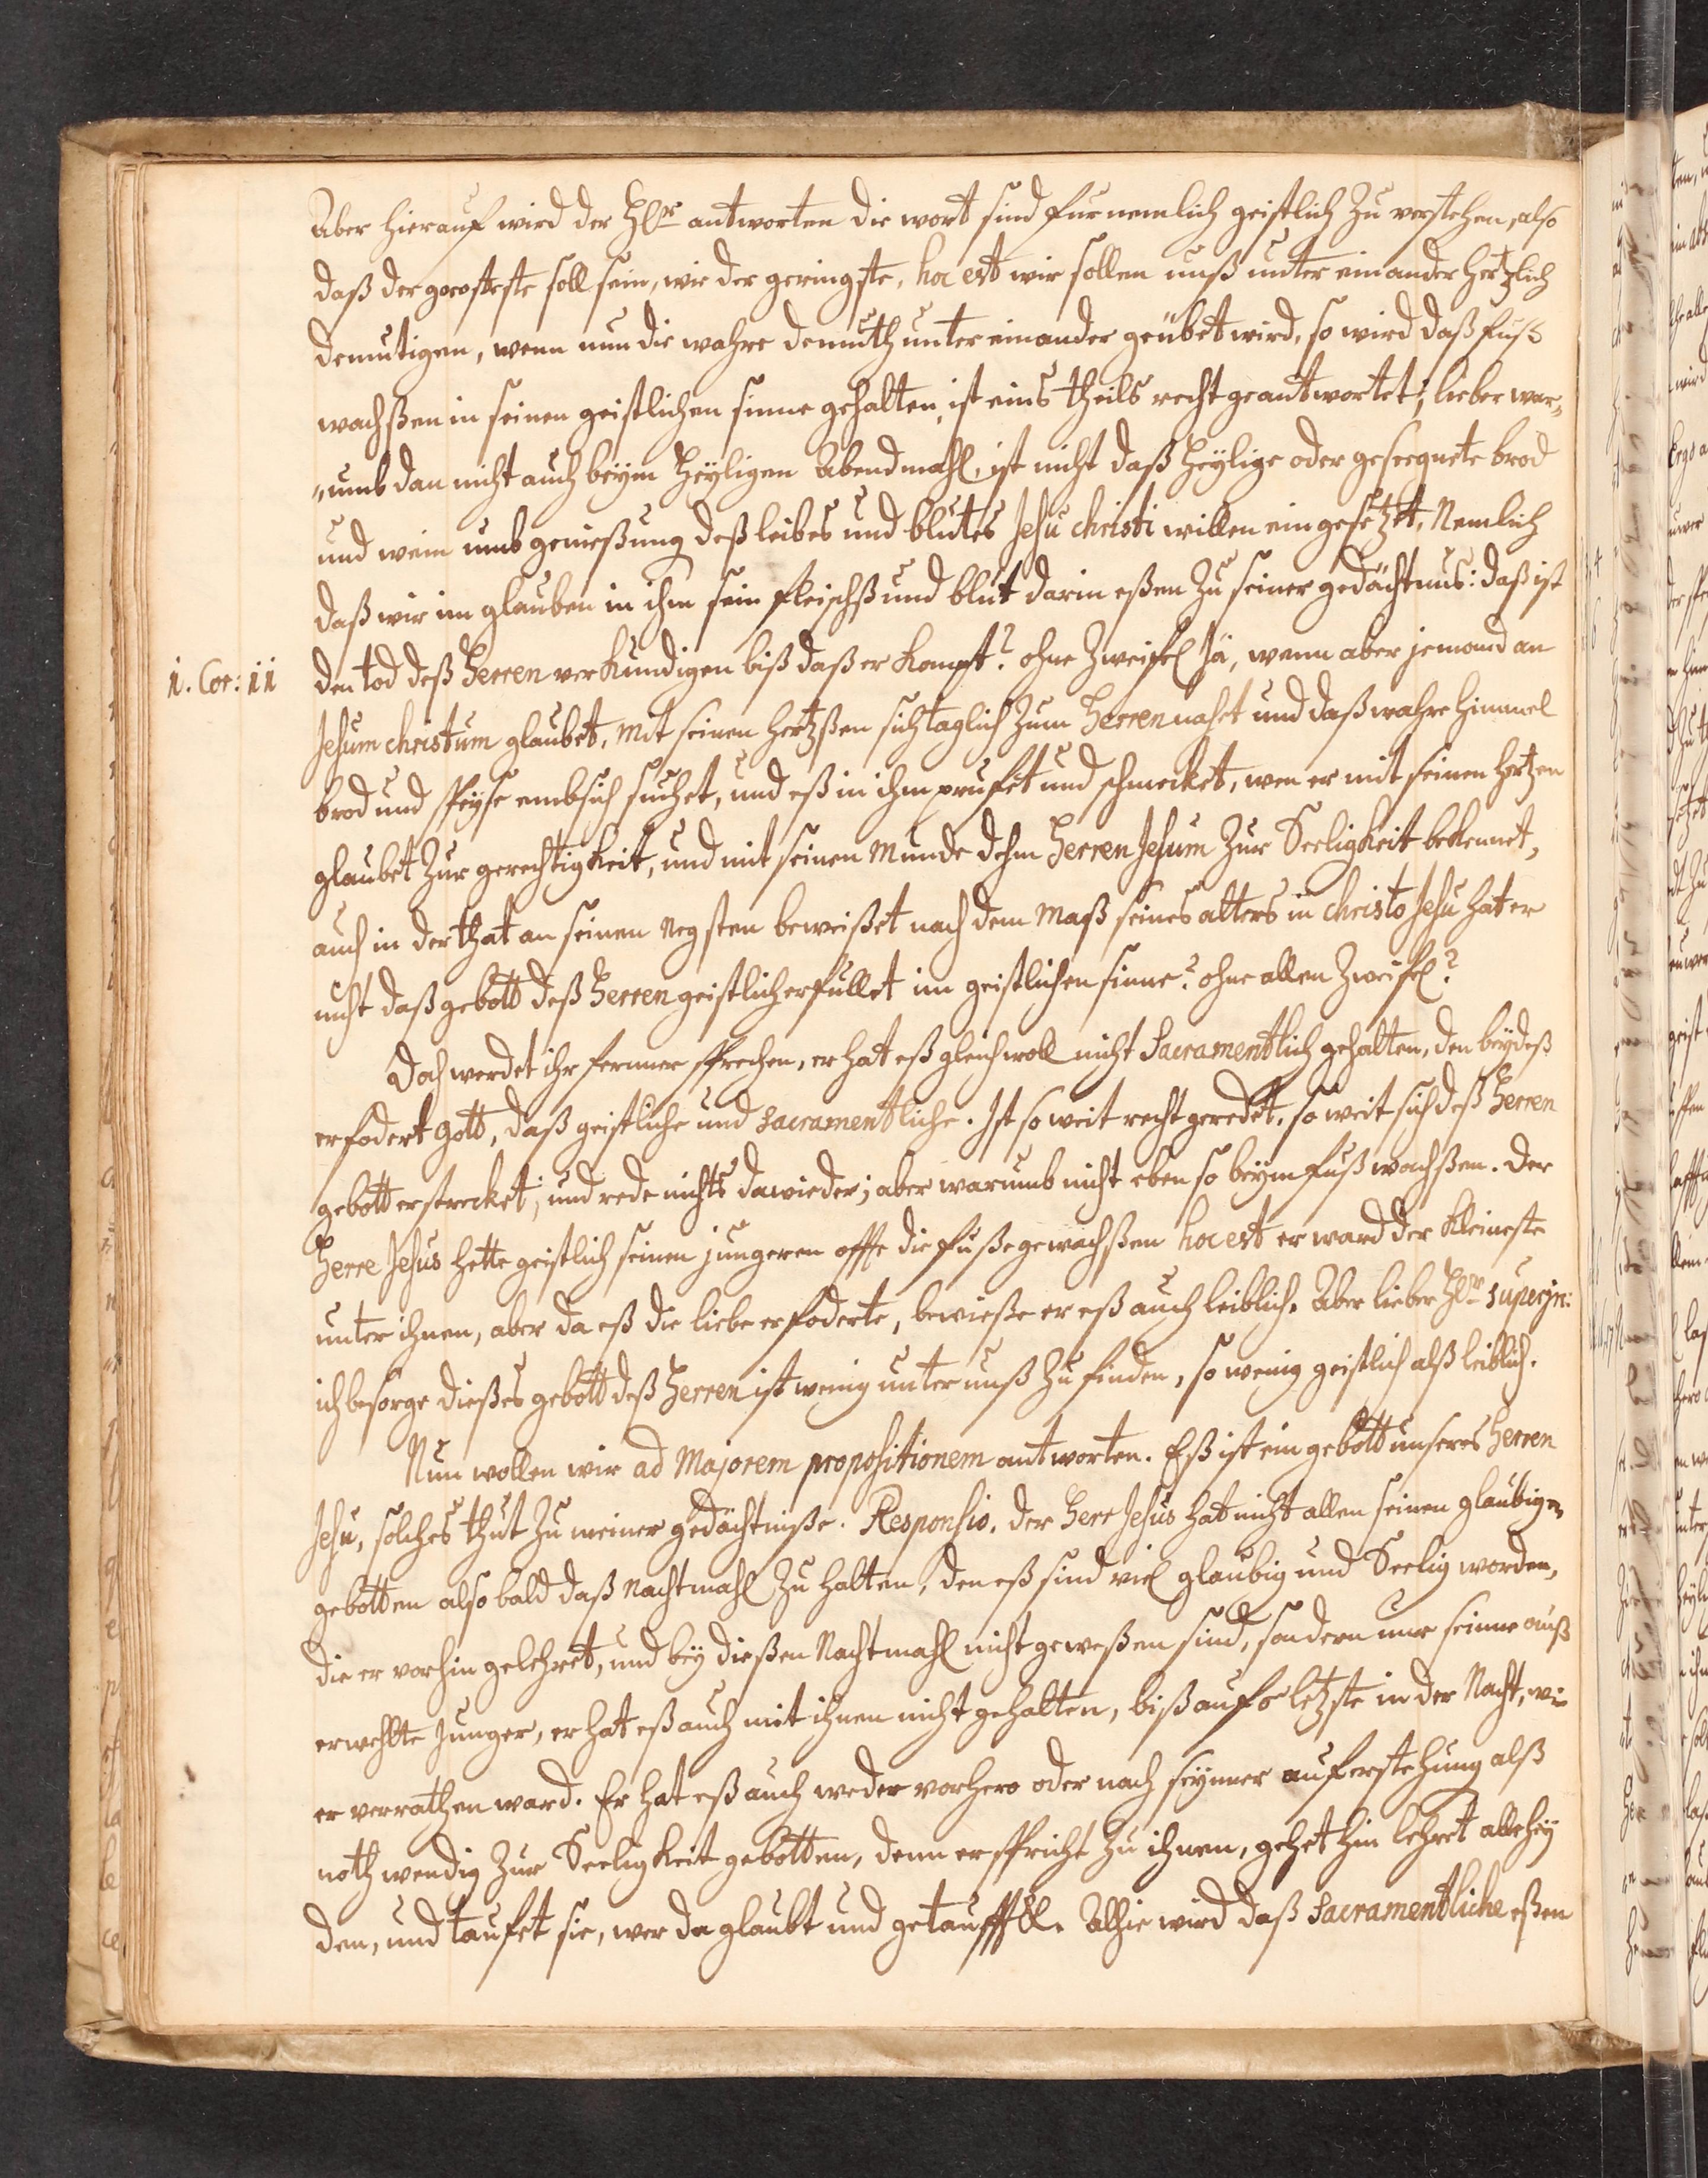 Aber hierauf wird der Hl<sup>r</sup> antworten die wort sind furnemlich geistlich zu verstehen, also
daß der groosteste soll sein, wie der geringste, hoc est wir sollen unß unter einander hertzlich
demutigen, wenn nun die wahre demuth unter einander geübet wird, so wird daß fuß
wachßen in seinen geistlichen sinne gehalten, ist eins theils recht geantwortet; lieber war„
„umb dan nicht auch beym Heyligen Abendmahl, ist nicht daß Heylige oder geseegnete brod
und wein umb genießung deß leibes und blutes Jesu christi willen eingesetzet, Nemlich
daß wir im glauben in ihm sein fleischß und blut darin eßen zu seiner gedächtnus: daß ist
1. Cor: 11
den tod deß Herren verkundigen biß daß er kompt? ohne Zweifel Jä, wenn aber jemand an
Jesum christum glaubet, mit seinen hertzßen sich taglich zum Herren nahet und daß wahre himmel
brod und speyse embsich suchet, und eß in ihm prufet und schmecket, wen er mit seinen hertzen
glaubet zur gerechtigkeit, und mit seinen Munde dehm Herren Jesum zur Seeligkeit bekennet,
auch in der that an seinen negsten beweißet nach dem maß seines alters in christo Jesu hat er
nicht daß gebott deß Herren geistlich erfullet im geistlichen sinne? ohne allen Zweifel?
Doch werdet ihr ferner sprechen, er hat eß gleichwoll nicht Sacramentlich gehalten, den beydeß
erfodert Gott, daß geistliche und sacramentliche. Ist so weit recht geredet, so weit sich deß Herren
gebott erstrecket; und rede nichts dawieder; aber warumb nicht eben so beym fuß wachßen. Der
Herre Jesus hette geistlich seinen jungeren offte die fuße gewachßen hoc est er ward der kleineste
unter ihnen, aber da eß die liebe erfoderte, bewieße er eß auch leiblich. Aber lieber Hl<sup>r</sup> superjn:
ich besorge dießes gebott deß Herren ist wenig unter unß zu finden, so wenig geistlich alß leiblich.
Nun wollen wir ad Majorem propositionem antworten. Eß ist ein gebott unseres Herren
Jesu, solches thut zu meiner gedächtniße. Responsio. Der Herr Jesus hat nicht allen seinen glaubigen
gebotten also bald daß Nachtmahl zu halten, den eß sind viel glaubig und Seelig worden,
die er vorhin gelehret, und bey dießen Nachtmahl nicht geweßen sind, sondern nur seine auß
erwehlte Junger, er hat eß auch mit ihnen nicht gehalten, biß aufs letzste in der Nacht, wi
er verrathen ward. Er hat eß auch weder vorhero oder nach seyner auferstehung alß
noth wendig zur Seeligkeit gebotten, denn er spricht zu ihnen, gehet hin lehret alle hey
den, und taufet sie, wer da glaubt und getaufft &. Alhie wird daß sacramentliche eßen